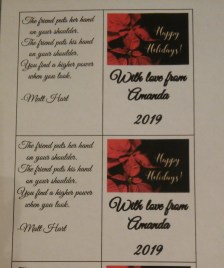 The friend puts her hand
on your shoulder.
The friend puts his hand
on your shoulder.
You find a higher power
when you look.
-Matt Hart
Happy
Holidays!
With love from
Amanda
2019
The friend puts her hand
on your shoulder.
The friend puts his hand
on your shoulder.
You find a higher power
when you look.
-Matt Hart
Happy
Holidays!
With love from
Amanda
2019